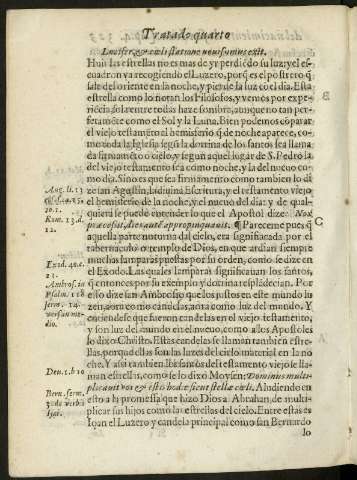 Tratado quarto
Lucifer, & cæli statione nouissimus exit.
Huir las estrellas no es mas de yr perdiẽdo su luz: y el es-
cuadron va recogiendo el Luzero, porq̃ es el postrero q̃
sale del oriente en la noche, y pierde la luz cõ el dia. Esta
estrella como lo notan los Filosofos, y vemos por expe-
riẽcia sola entre todas haze sombra, aunque no tan per-
fetamẽte como el Sol y la Luna. Bien podemos cõparar
el viejo testamẽto al hemisferio q̃ de noche aparece, co-
mo toda la Iglesia segũ la dotrina de los santos sea llama
da firmamẽto o cielo, y segun aquel lugar de S. Pedro la
del viejo testamẽto sea como noche, y la del nueuo co-
mo dia. Si no es que sea firmamento como tambien lo di
ze san Agustin, la diuina Escritura, y el testamento viejo
el hemisferio de la noche, y el nueuo del dia: y de qual-
quiera se puede entender lo que el Apostol dize: Nox
præcessit, dies autẽ appropinquauit. ¶ Pareceme pues q̃
aquella parte noturna del cielo, era significada por el
tabernaculo o templo de Dios, en que ardian siempre
muchas lamparas puestas por su orden, como se dize en
el Exodo. Las quales lamparas significauan los santos,
q̃ entonces por su exemplo y dotrina resplãdecian. Por
esso dize san Ambrosio que los justos en este mundo lu
zen, aora como candelas, aora como luz del mundo. Y
enciendese que fueron candelas en el viejo testamento,
y son luz del mundo en el nueuo, como a los Apostoles
lo dixo Christo. Estas candelas se llaman tambiẽ estre-
llas, porque ellas son las luzes del cielo material en la no
che. Y assi tambien los santos del testamento viejo se lla
man estrellas, como se lo dixo Moysen: Dominus multi-
plicauit vos & estis hodie sicut stellæ cæli. Aludiendo en
esto a la promessa que hizo Dios a Abrahan, de multi-
plicar sus hijos como las estrellas del cielo. Entre estas es
Ioan el Luzero y candela principal como san Bernardo
lo
B
Aug. li. 13
Rom. 13. d.
12.
C
Exod. 40. c.
23.
Ambros. in
Psalm. 118
Deu. 1. b. 10
Bern. serm.